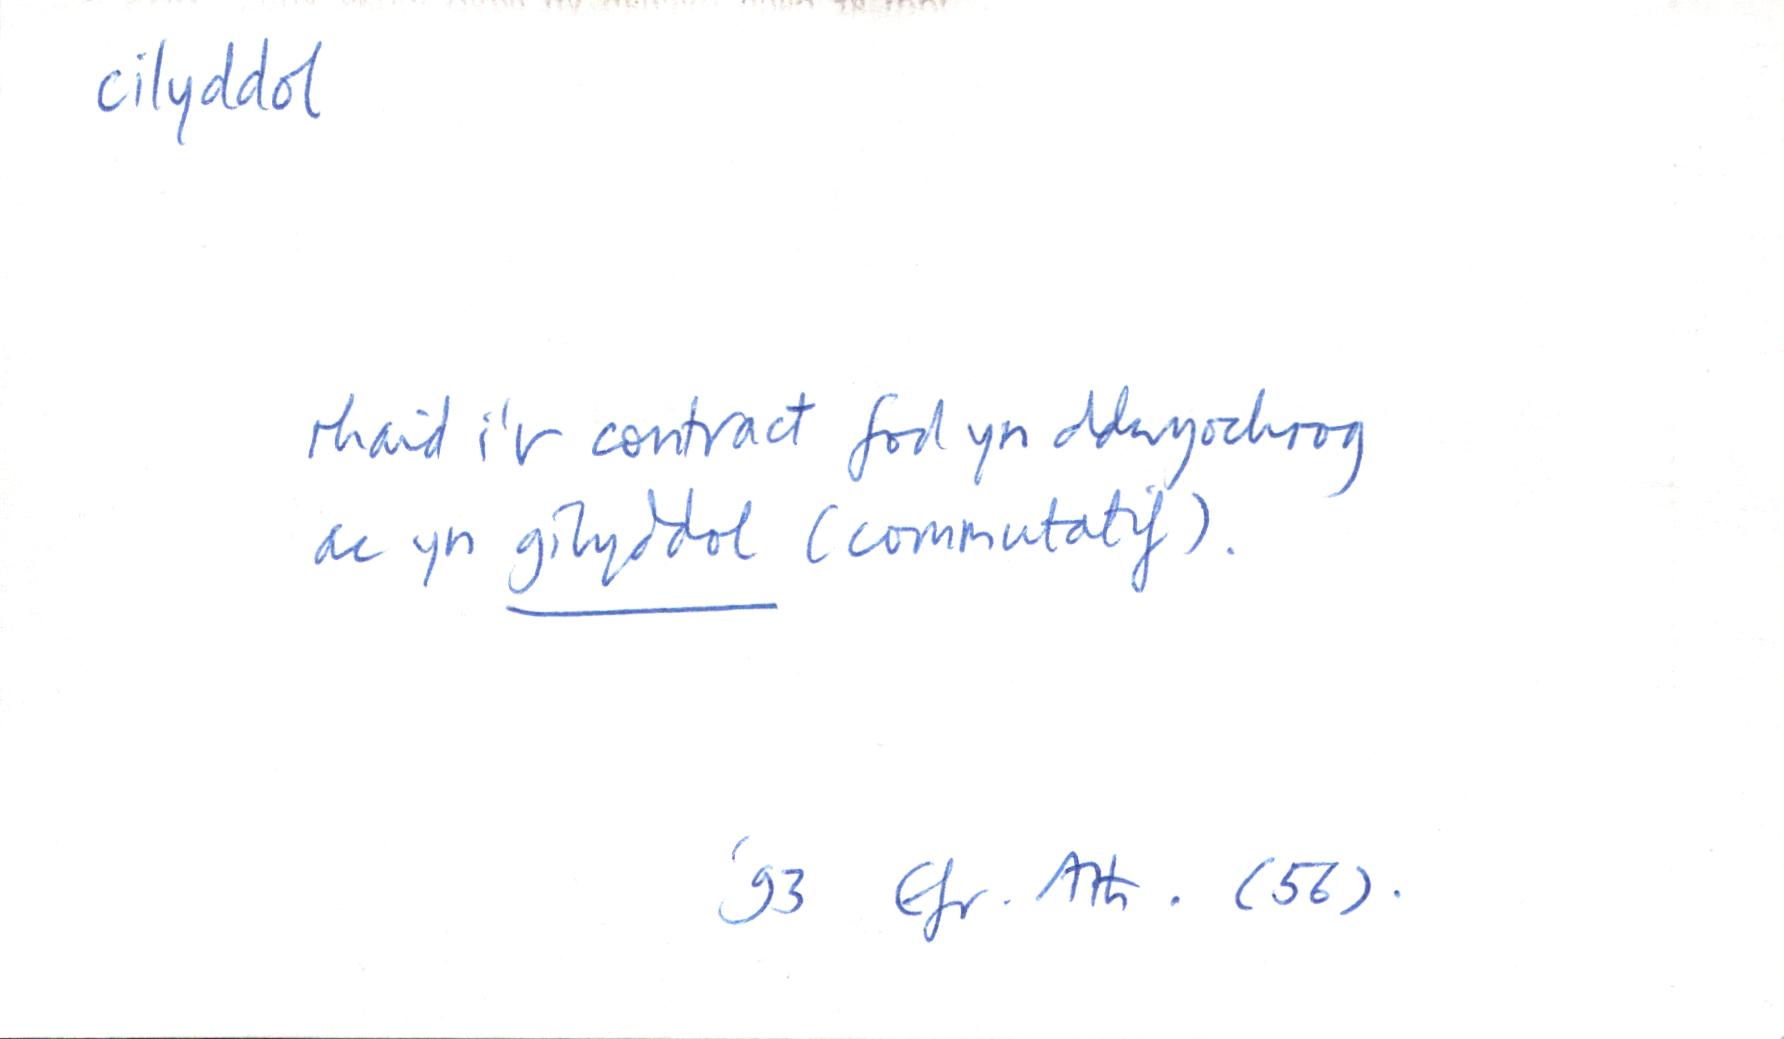 cilyddol
rhaid i'r contract fod yn ddwyochrog
ac yn gilyddol (commutatif).
'93 Efr. Ath. (56).